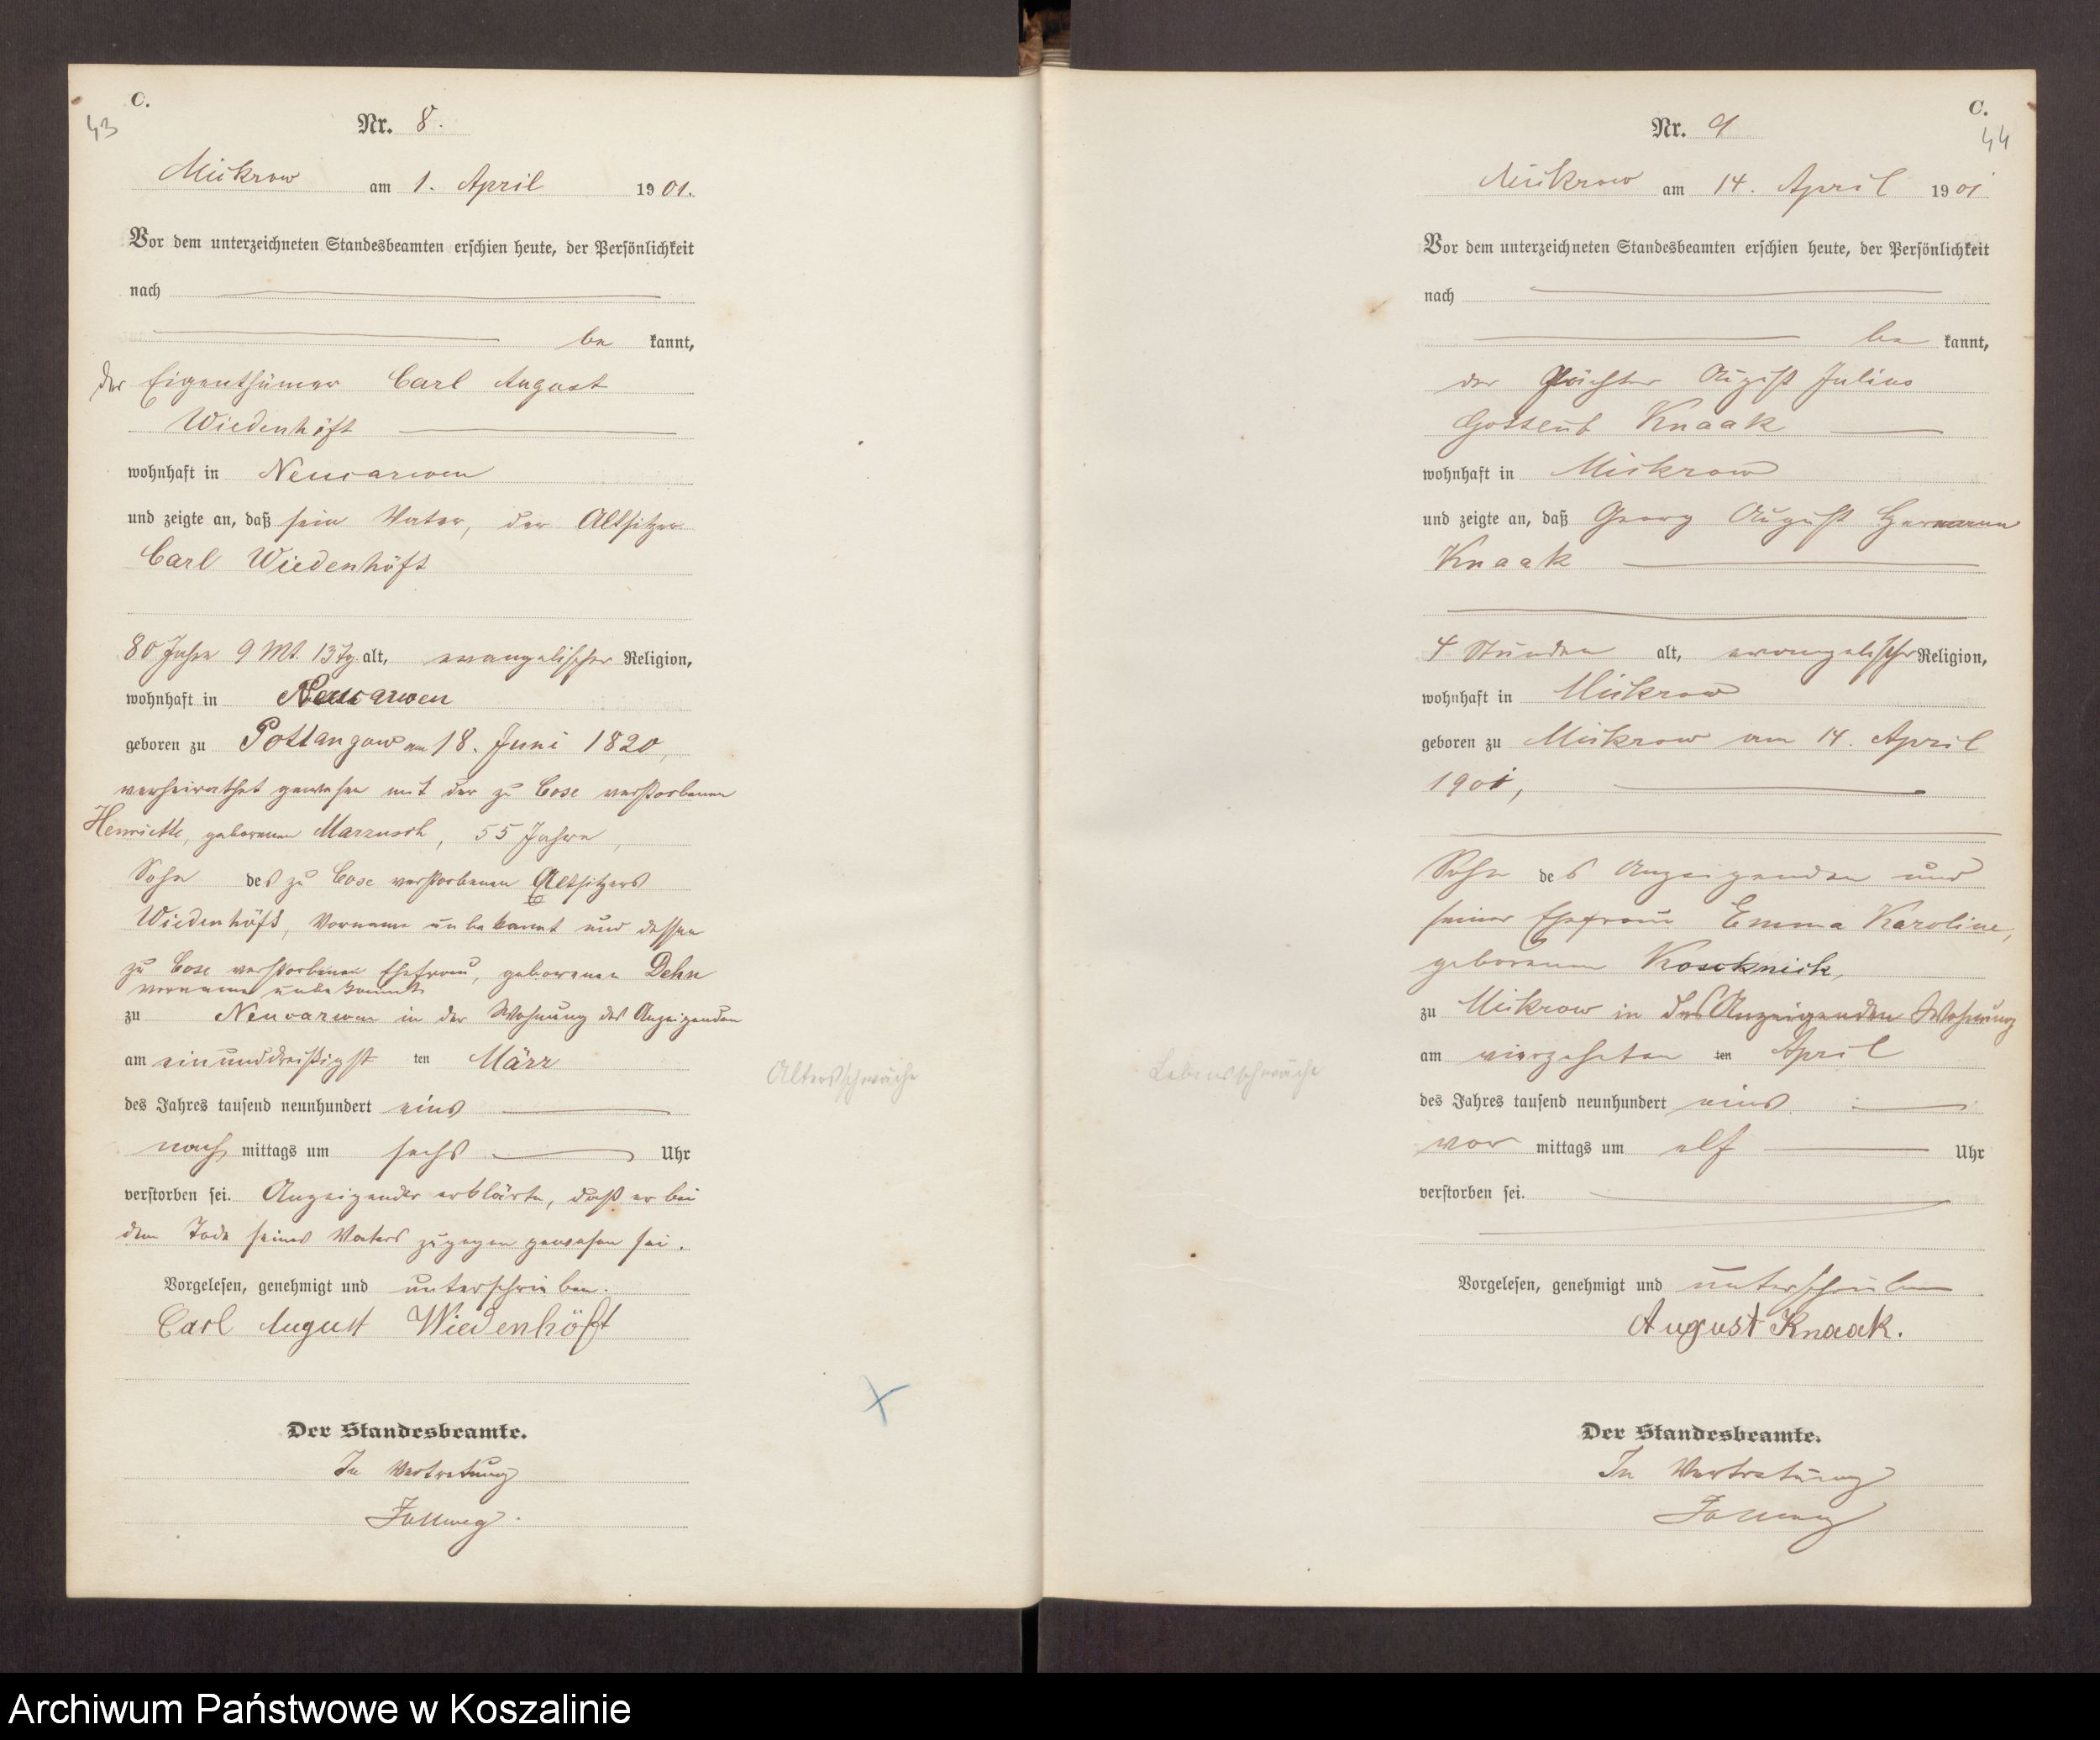 C.
43
Nr. 8.
Mickrow am 1. April 1901.
Vor dem unterzeichneten Standesbeamten erschien heute, der Persönlichkeit
nach
be kannt,
der Eigenthümer Carl August
Wiedenhöft
wohnhaft in Neucarwen
und zeigte an, daß sein Vater, der Altsitzer
Carl Wiedenhöft
80 Jahre 9 Mt. 13 Tg. alt, evangelischer Religion,
wohnhaft in Neucarwen
geboren zu Pottangow am 18. Juni 1820,
verheirathet gewesen mit der zu Cose verstorbenen
Henriette, geborenen 55 Jahre,
Sohn des zu Cose verstorbenen Altsitzers
Wiedenhöft, Vorname unbekannt und dessen
zu Cose verstorbenen Ehefrau, geborenen Dehn
Vorname unbekannt
zu Neucarwen in der Wohnung des Anzeigenden
am einunddreißigst ten März
des Jahres tausend neunhundert eins
nach mittags um sechs Uhr
verstorben sei. Anzeigender erklärte, daß er bei
dem Tode seines Vaters zugegen gewesen sei.
Vorgelesen, genehmigt und unterschrieben.
Carl August Wiedenhöft
Der Standesbeamte.
In Vertretung
Altersschwäche
C.
44
Nr. 9
Mickrow am 14. April 1901
Vor dem unterzeichneten Standesbeamten erschien heute, der Persönlichkeit
nach
be kannt,
der Pächter August Julius
Gottlieb Knaak
wohnhaft in Mickrow
und zeigte an, daß Georg August Hermann
Knaak
4 Stunden alt, evangelischer Religion,
wohnhaft in Mickrow
geboren zu Mickrow am 14. April
1901,
Sohn des Anzeigenden und
seiner Ehefrau Emma Karoline,
geborenen Koschnick,
zu Mickrow in des Anzeigenden Wohnung
am vierzehnten ten April
des Jahres tausend neunhundert eins
vor mittags um elf Uhr
verstorben sei.
Vorgelesen, genehmigt und unterschrieben
August Knaak.
Der Standesbeamte.
In Vertretung
Lebensschwäche
Archiwum Państwowe w Koszalinie